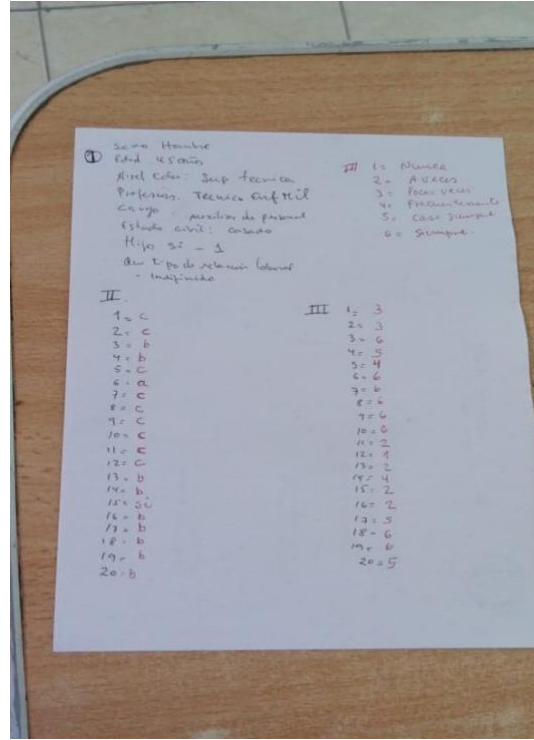 I
Sexo Hombre
Edad 45 años
Nivel Educ: Sup tecnica
Profesión. Tecnico Enf Mil
Cargo: auxiliar de personal
Estado civil: casado
Hijo si - 1
Que tipo de relación laboral
- Indifinido
III 1= Nunca
2= A veces
3= Pocas veces
4= Frecuentemente
5= Casi siempre
6= Siempre.
II.
1= c
2= c
3= b
4= b
5= c
6= a
7= c
8= c
9= c
10= c
11= c
12= c
13= b
14= b
15= si
16= b
17= b
18= b
19= b
20= b
III 1= 3
2= 3
3= 6
4= 5
5= 4
6= 6
7= 6
8= 6
9= 6
10= 6
11= 2
12= 1
13= 2
14= 4
15= 2
16= 2
17= 5
18= 6
19= 6
20= 5